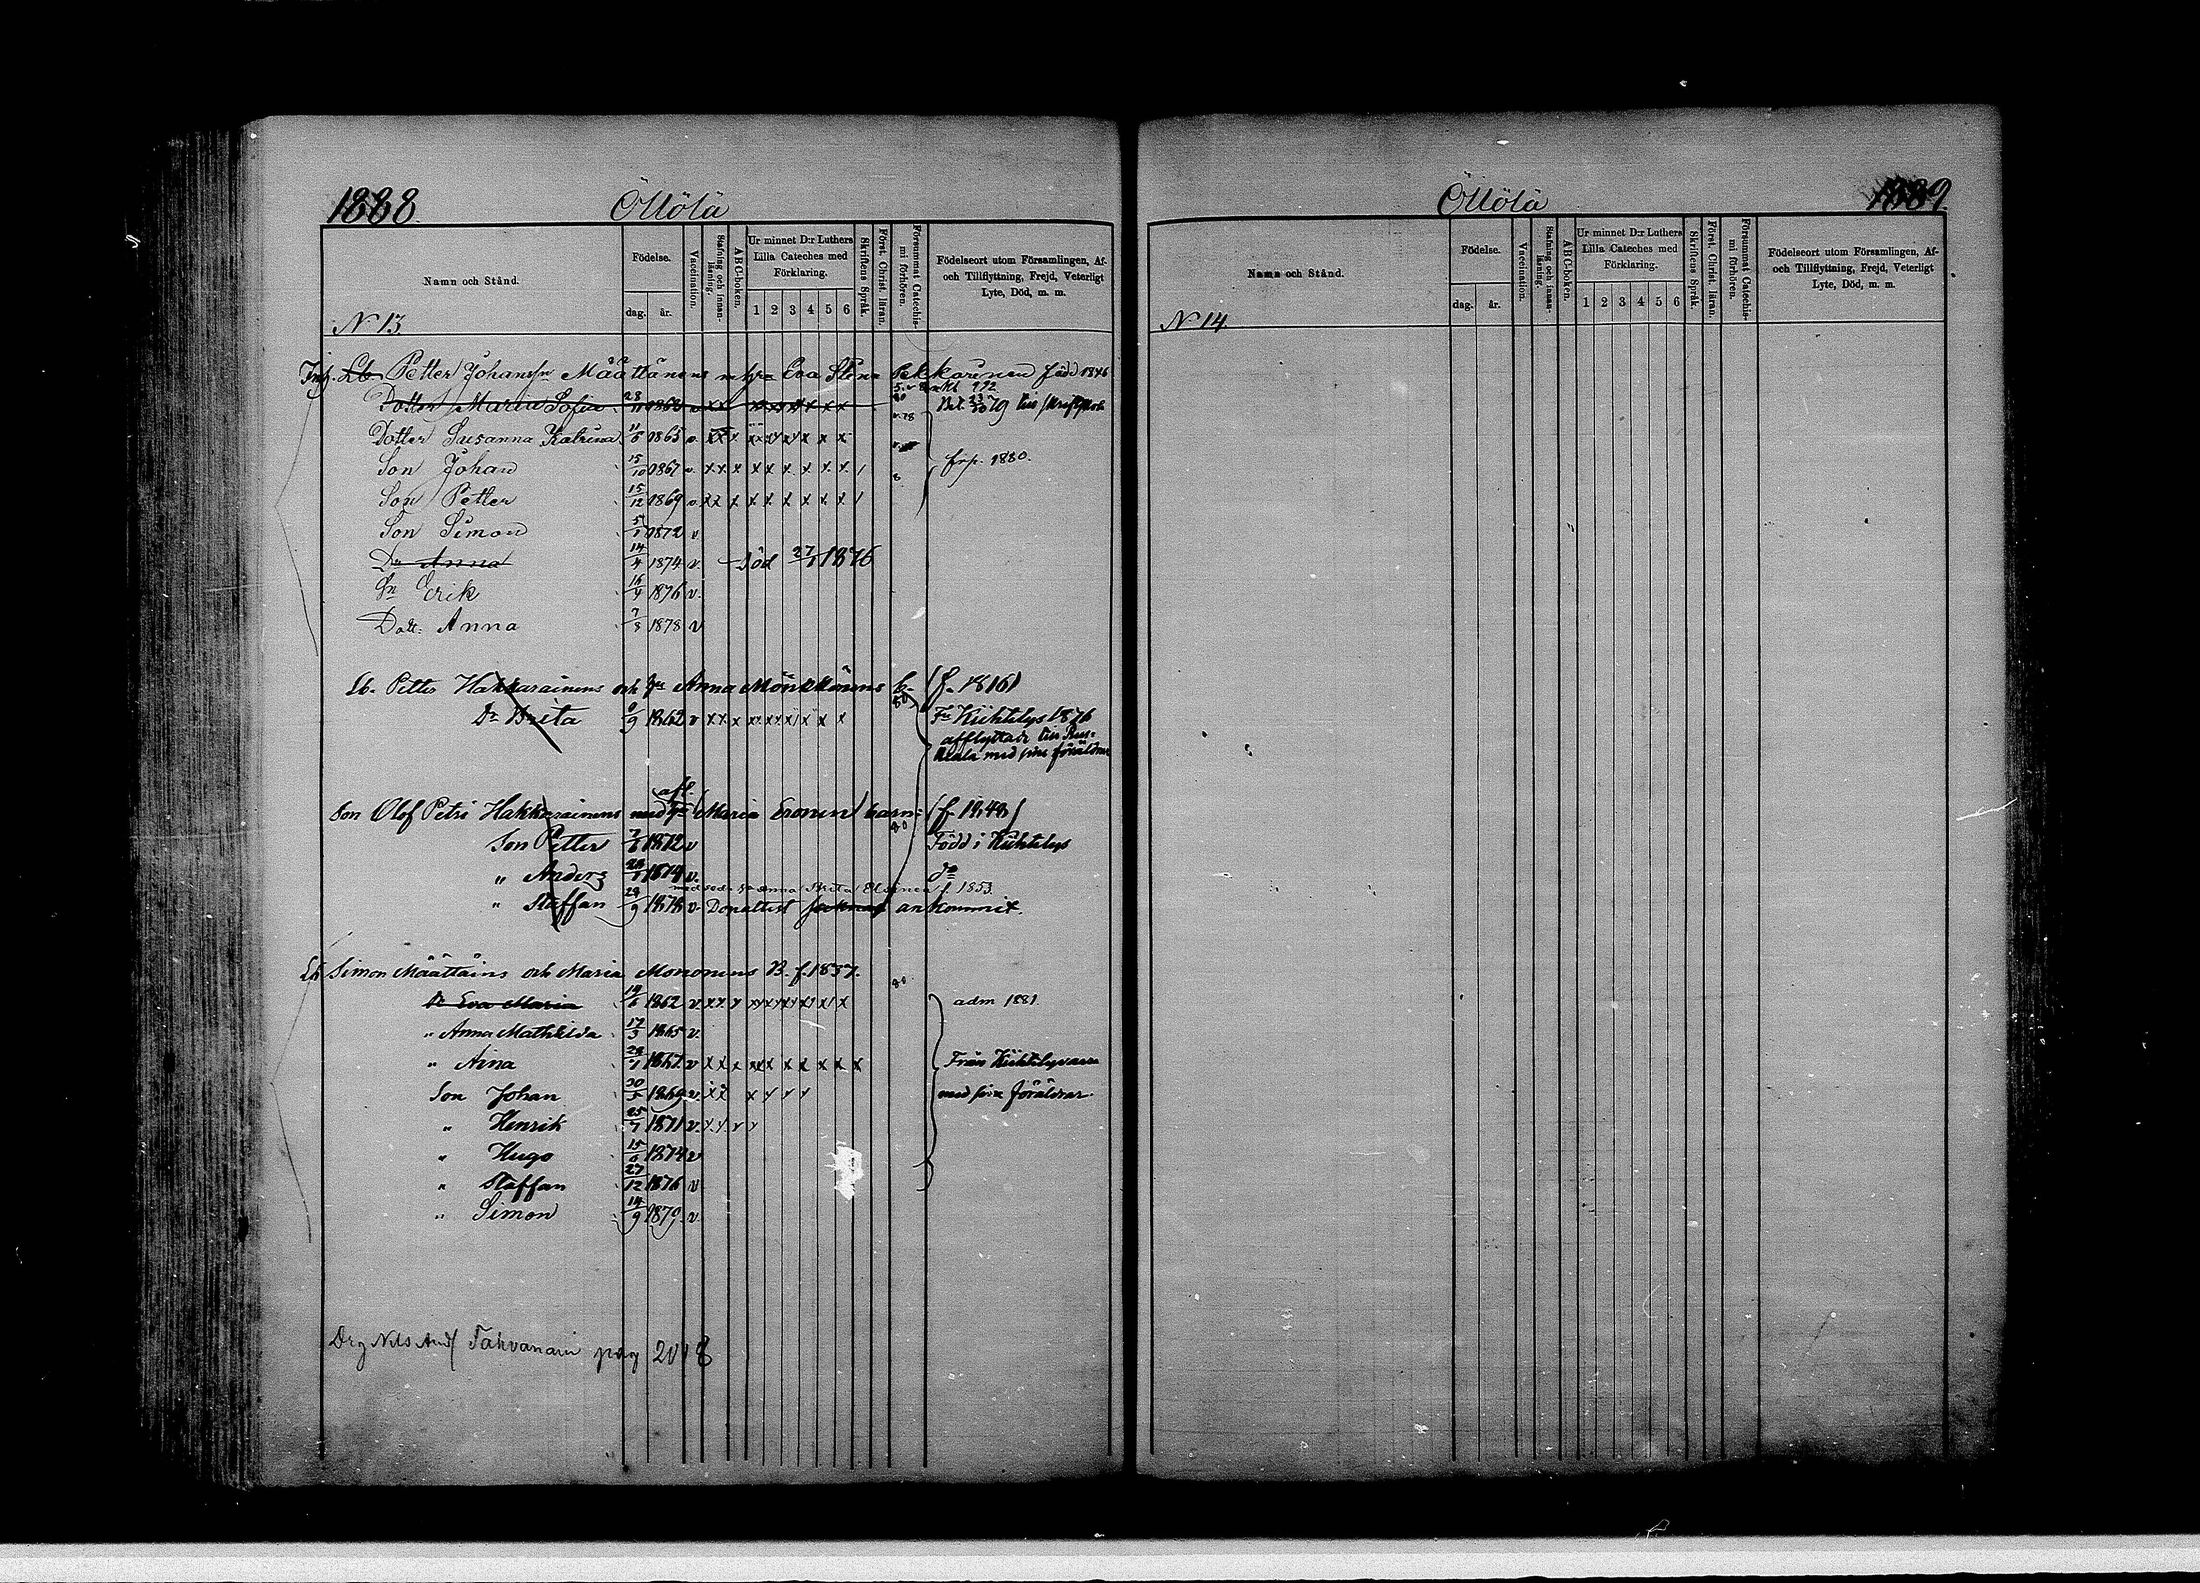 1888 Öllölä
Namn och Stånd. Födelse. dag. år. Vaccination. Stafning och innanläsning. ABC-boken. Ur minnet D:r Luthers Lilla Cateches med Förklaring. 1 2 3 4 5 6 Skriftens Språk. Först. Christ. läran. Försummat Catechismi förhören. Födelseort utom Församlingen, Af- och Tillflyttning, Frejd, Veterligt Lyte, Död, m. m.
N 13
Lb. Petter Johanss:n Määttänens m hu Eva Stina Pekkarinen född 1846
Dotter Maria Sofia 28/11 1863 v x x x x x x x x
Dotter Susanna Katrina 11/5 1865 v. x x x x x x x x x
Son Johan 15/10 1867 v. x x x x x x x x x / frp. 1880.
Son Petter 15/12 1869 v. x x x x x x x x x /
Son Simon 5/1 1872 v
Dr Anna 14/4 1874 v. död 27/1 1876
Sn Erik 16/4 1876 v.
Dott: Anna 7/8 1878 v
Lb. Petter Hakkarainens och hu Anna Mönkkönens b. (f. 1816)
Dr Brita 9 1862 v x x x x x x x x x Fr Kiihtelys 1876
afflyttade till Rus-
keala med sina föräldrar
afl.
Son Olof Petri Hakkarainens med hu (Maria Eronen) barn: (f. 1848)
Son Petter 7/6 1872 v Född i Kiihtelys
" Anders 28/1 1874 v. do
Brita f. 1853.
" Staffan 29/9 1878 v. ankommit.
Lb Simon Määttäins och Maria Mononens B. f. 1837. 80
Dr Eva Maria 19/6 1862 v. x x x x x x x x x adm 1881.
" Anna Mathilda 17/3 1865 v.
" Aina 28/1 1867 v x x x x x x x x x x Från Kiihtelysvaara
Son Johan 30/5 1869 v. x x x x x x med sina föräldrar.
" Henrik 25/7 1871 v. x x v v
" Hugo 15/6 1874 v
" Staffan 27/12 1876 v
" Simon 14/9 1879. v.
Drg Nils And/ Tahvanain pag 2018
Öllölä 1889
Namn och Stånd. Födelse. dag. år. Vaccination. Stafning och innanläsning. ABC-boken. Ur minnet D:r Luthers Lilla Cateches med Förklaring. 1 2 3 4 5 6 Skriftens Språk. Först. Christ. läran. Försummat Catechismi förhören. Födelseort utom Församlingen, Af- och Tillflyttning, Frejd, Veterligt Lyte, Död, m. m.
N 14